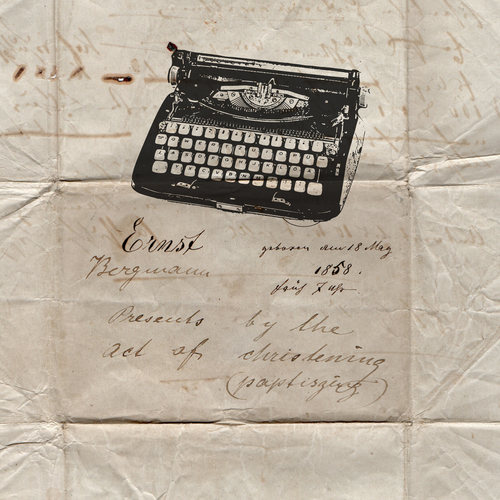 Ernst
geboren am 18 May
Bergmann
1858.
früh 7 uhr
Presents by the
act of christening
(paptiszing)